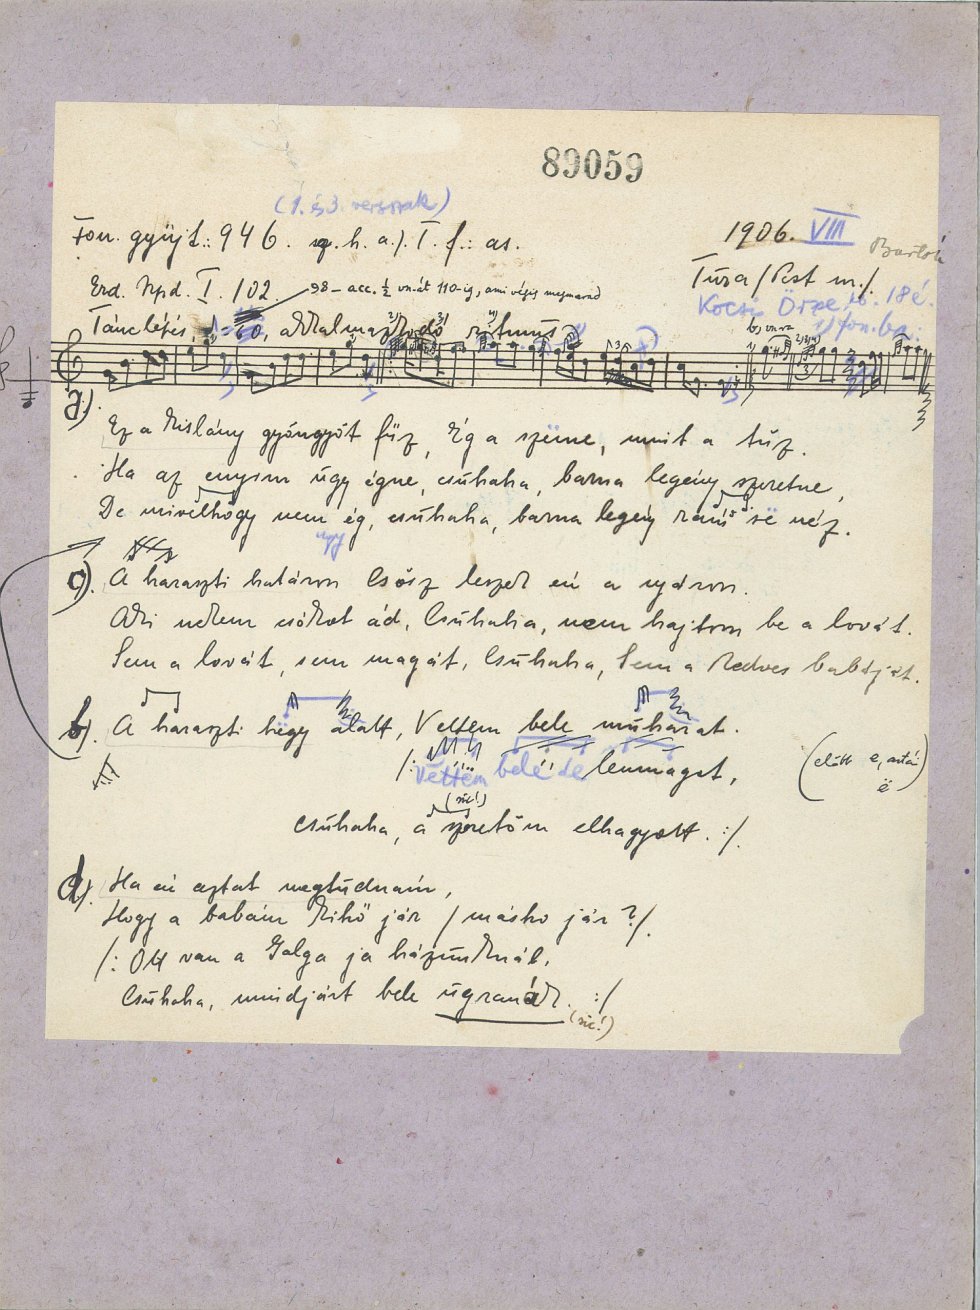 89059
(1. és 3. versszak)
Fon. gyüjt.: 946. a.) I. f.: as.
1906. VIII
Bartók
Erd. Npd. I. 102.
98 – acc. ½ vn.-át 110-ig, ami végig megmarad
Tura (Pest m.).
Kocsis Örze, 18 é.
Tánclépés, alkalmazkodó ritmus
a).
Ez a kislány gyöngyöt fűz, Ég a szëme, mint a tűz.
Ha az enyim úgy égne, csuhaha, barna legény szeretne,
De mivelhogy nem ég, csuhaha, barna legény rám së néz.
úgy
c). A haraszti határon Csősz leszek én a nyáron.
Aki nekem csókot ád, Csuhaha, nem hajtom be a lovát.
Sem a lovát, sem magát, Csuhaha, Sem a kedves babáját.
b). A haraszti hëgy alatt, Vettem bele muharat.
/: Vëttëm belé de lenmagot,
(előtt e, aztán ë)
(sic!)
Csuhaha, a szeretőm elhagyott. :/.
d). Ha én aztat megtudnám,
Hogy a babám kihő jár / másho jár?/.
/: Ott van a Galga ja házunknál,
Csuhaha, mindjárt bele ugranák. :/
(sic!)